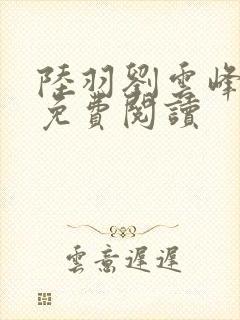 陸羽劉雲峰
免費閱讀
雲意遲遲